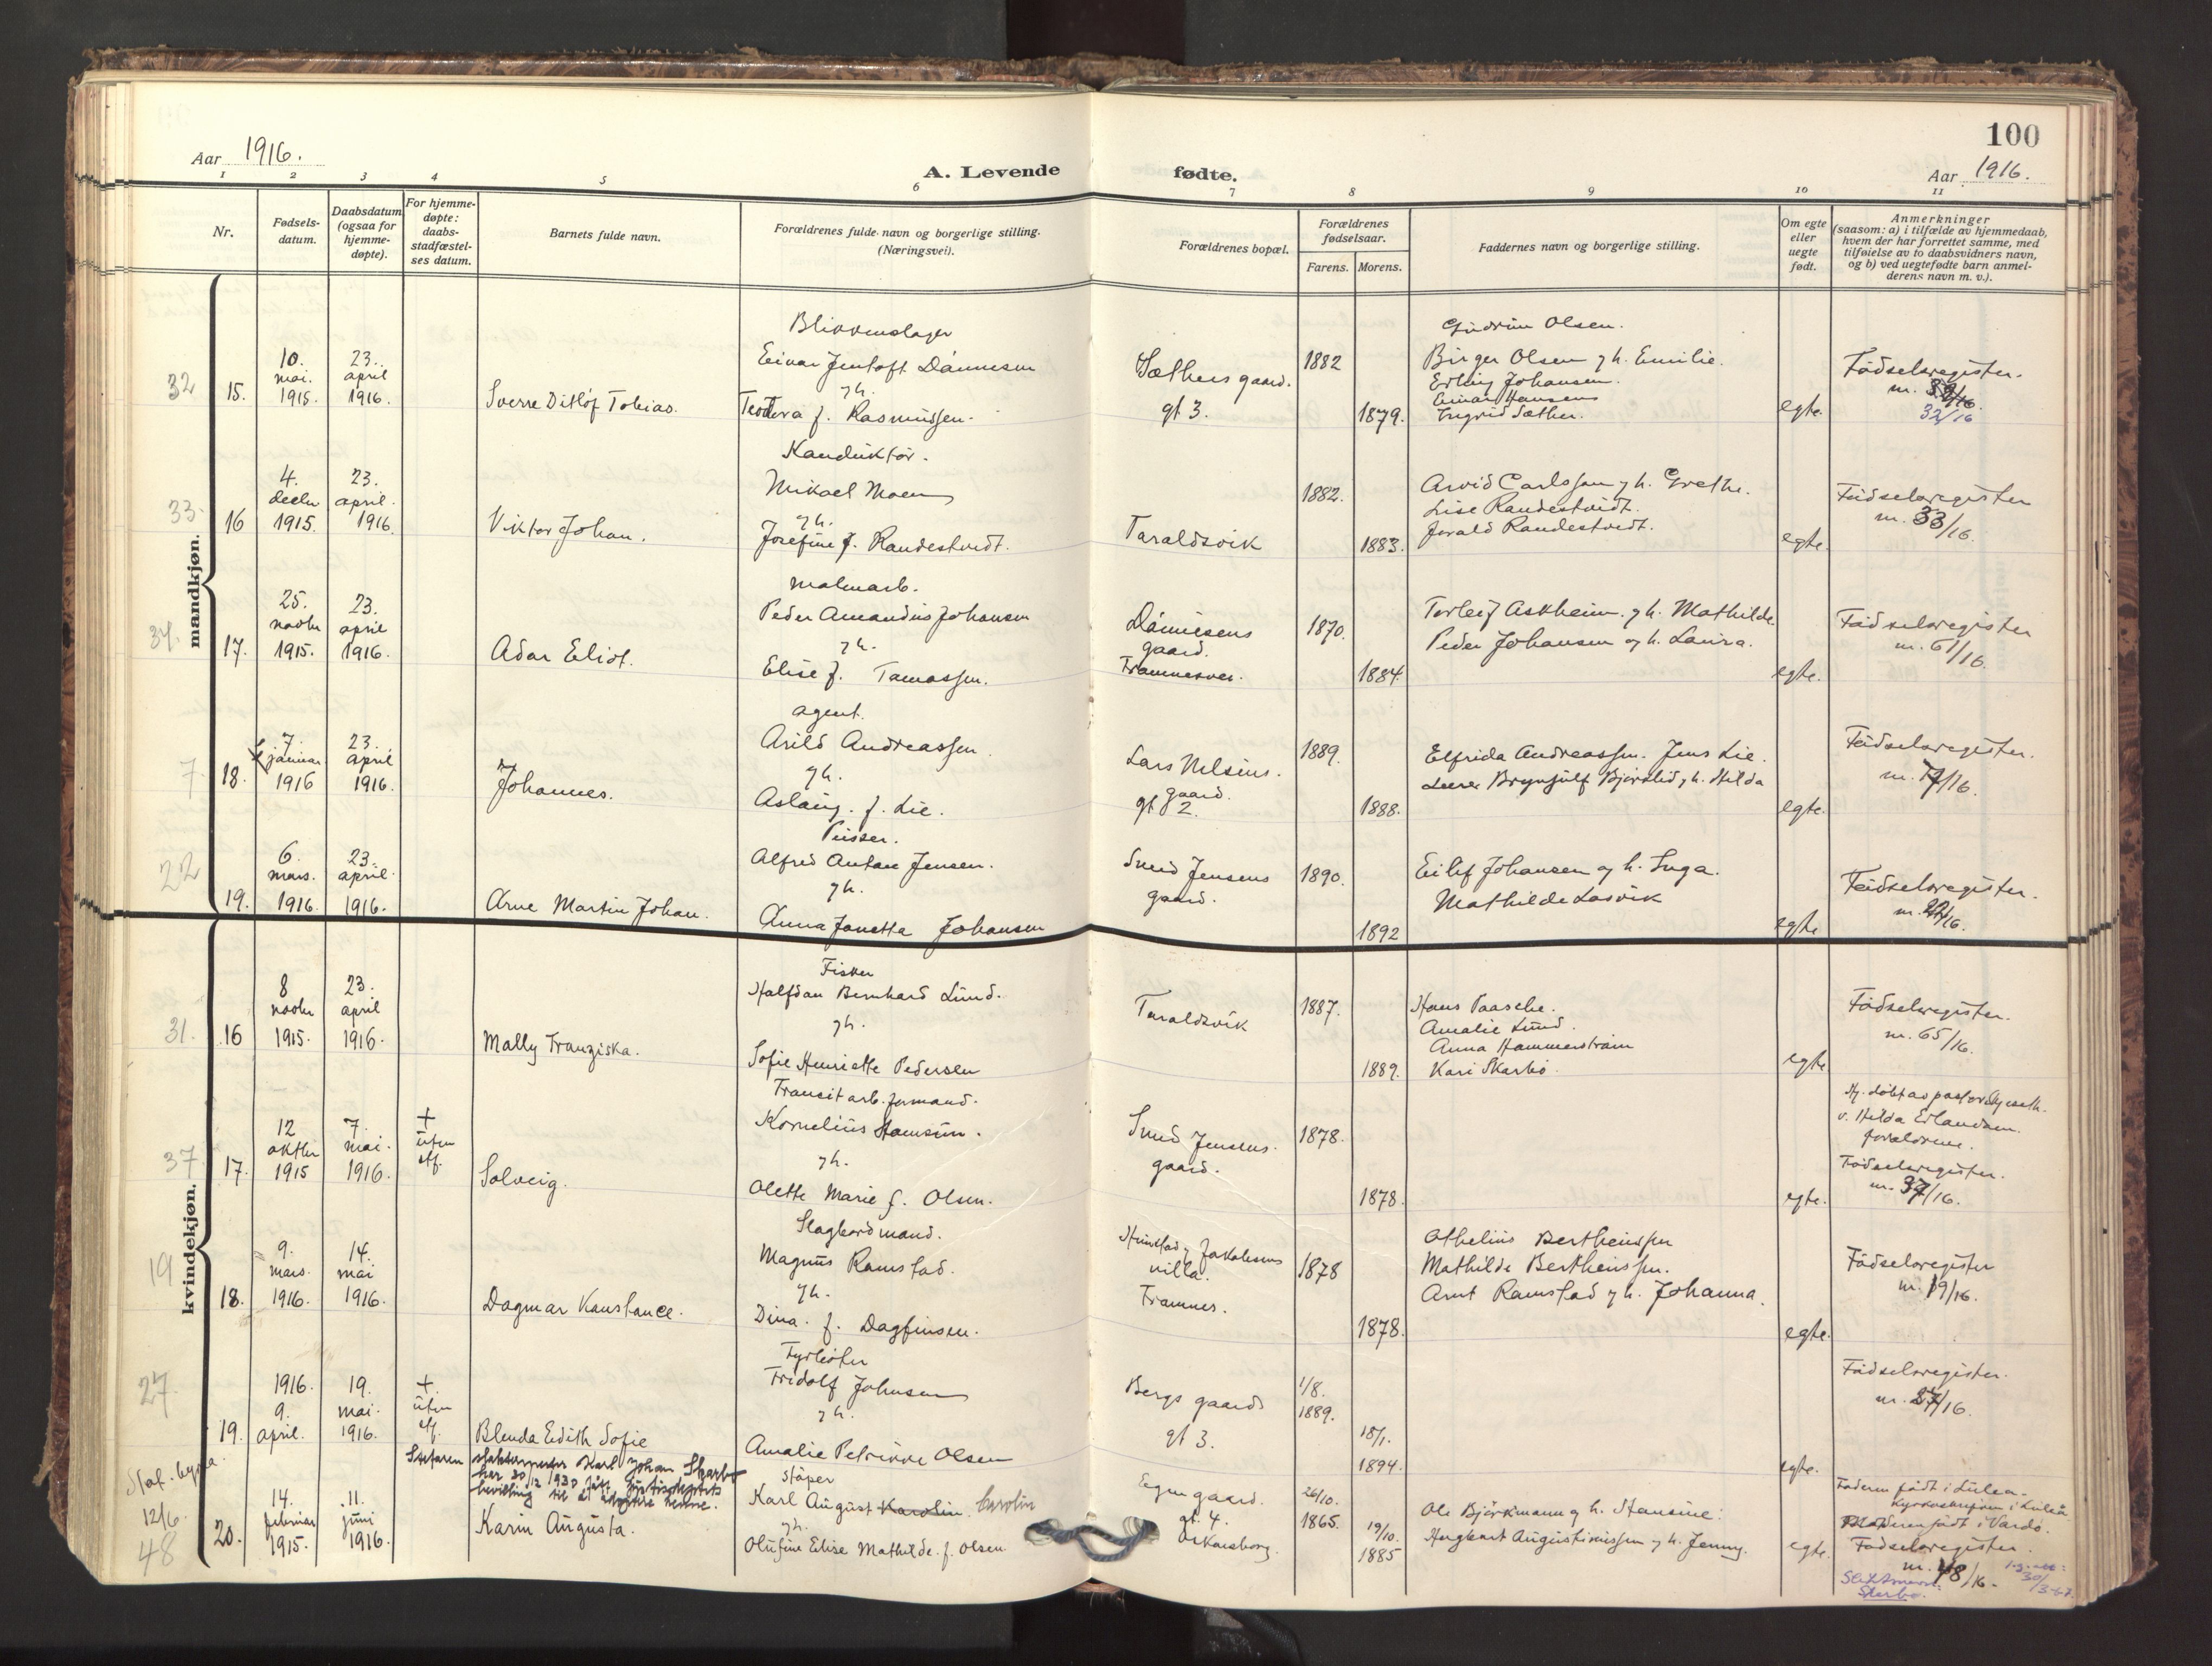 100
Aar 1916.
A. Levende fødte.
Aar 1916.
1 2 3 4 5 6 7 8 9 10 11
Nr.
Fødsels-
datum.
Daabsdatum
(ogsaa for
hjemme-
døpte).
For hjemme-
døpte:
daabs-
stadfæstel-
ses datum.
Barnets fulde navn.
Forældrenes fulde navn og borgerlige stilling.
(Næringsvei).
Forældrenes bopæl.
Forældrenes
fødselsaar.
Farens. Morens.
Faddernes navn og borgerlige stilling.
Om egte
eller
uegte
født.
Anmerkninger
(saasom: a) i tilfælde av hjemmedaab,
hvem der har forrettet samme, med
tilføielse av to daabsvidners navn,
og b) ved uegtefødte barn anmel-
derens navn m. v.).
mandkjøn.
32
15.
10.
mai.
1915.
23.
april
1916.
Sverre Ditlof Tobias.
Blikkenslager
Einar Jentoft Dånnesen
gh.
Teodora f. Rasmussen.
Sæthers gaard.
gt 3.
1882
1879.
Gudrun Olsen.
Birger Olsen gh. Emilie.
Erling Johansen.
Einar Hansens
Ingrid Sæther.
egte.
Fødselsregister.
nr.
32/16
33.
16
4.
decbr
1915.
23.
april.
1916.
Viktor Johan.
Konduktør.
Mikael Moen
gh.
Josefine f. Randestvedt.
Taraldsvik
1882.
1883.
Arvid Carlssen gh. Grethe.
Lise Randestvedt.
Jorald Randestvedt.
egte.
Fødselsregister
nr. 33/16.
34.
17.
25.
novbr
1915.
23.
april
1916.
Adar Eliot.
Malmarb.
Peder Amandus Johansen
gh.
Elise f. Tomassen.
Dånnesens
gaard.
Framnesvei.
1870.
1884.
Torleif Askheim. gh. Mathilde.
Peder Johansen og h. Laura.
egte.
Fødselsregister
nr. 61/16.
7.
18.
7.
januar
1916
23.
april
1916.
Johannes.
agent.
Arild Andreassen.
gh.
Aslaug. f. Lie.
Lars Nelsius.
gaard.
gt 2.
1889.
1888.
Elfrida Andreassen. Jens Lie.
Brynjulf Bjørslid gh. Hilda
egte.
Fødselsregister.
nr. 7/16.
22
19.
6.
mars.
1916.
23.
april.
1916.
Arne Martin Johan.
Pusser.
Alfred Anton Jensen.
gh.
Anna Janetta Johansen
Sned Jensens
gaard.
1890.
1892
Eilif Johansen og h. Inga.
Mathilde Losvik
egte
Fødselsregister.
nr. 22/16.
kvindekjøn.
31.
16
8
novbr
1915.
23.
april
1916.
Mally Franziska.
Fisker
Halfdan Bernhard Lund.
gh.
Sofie Henriette Pedersen
Taraldsvik
1887.
1889.
Hans Paasche.
Amalie Lund.
Anna Hammerstrøm
Kari Skarbø.
egte
Fødselsregister.
nr. 65/16.
37.
17.
12
oktbr
1915
7.
mai.
1916.
+
uten
eff.
Solveig.
Transitarb. formand.
Kornelius Hamsun.
gh.
Olette Marie f. Olsen.
Sned Jensens.
gaard.
1878.
1878.
egte.
Hj. døbt av pastor
v. Hilda Erlandsen.
forældrene.
Fødselsregister.
nr. 37/16.
19
18.
9.
mars.
1916.
14.
mai
1916.
Dagmar Konstance.
Slagbordmand.
Magnus Ramstad.
gh.
Dina. f. Dagfinsen.
Hunstad og Jakobsens
villa.
Framnes.
1878
1878.
Othelius Bertheussen
Mathilde Bertheussen.
Arnt Ramstad gh. Johanna.
egte.
Fødselsregister
nr. 19/16.
27.
19.
1916.
9.
april.
19.
mai.
1916.
+.
uten
eff.
Blenda Edith Sofie
Fyrbøter
Fridolf Johnsen
gh.
Amalie Petrikke Olsen
Bergs gaard
gt 3.
1/8.
1889.
18/1.
1894.
egte.
Fødselsregister.
nr. 27/16.
Stefaren Karl Johan Skarbø
har 30/12 1930 fått justisdeptets
bevilling til å adoptere henne.
12/6.
48
20.
14.
februar
1915.
11.
juni
1916.
Karin Augusta.
støper
Karl August Karolin. Carolin
gh.
Olufine Elise Mathilde. f. Olsen
Egen gaard.
gt. 4.
Oskarsborg.
26/10.
1865.
19/10.
1885
Ole Björkmann og h. Hansine.
Hagbart Augustinussen gh. Jenny.
egte.
Faderen født i Luleå.
Moderen født i Vardø.
Fødselsregister.
nr. 48/16.
Slektsnavn:
Skarbø.